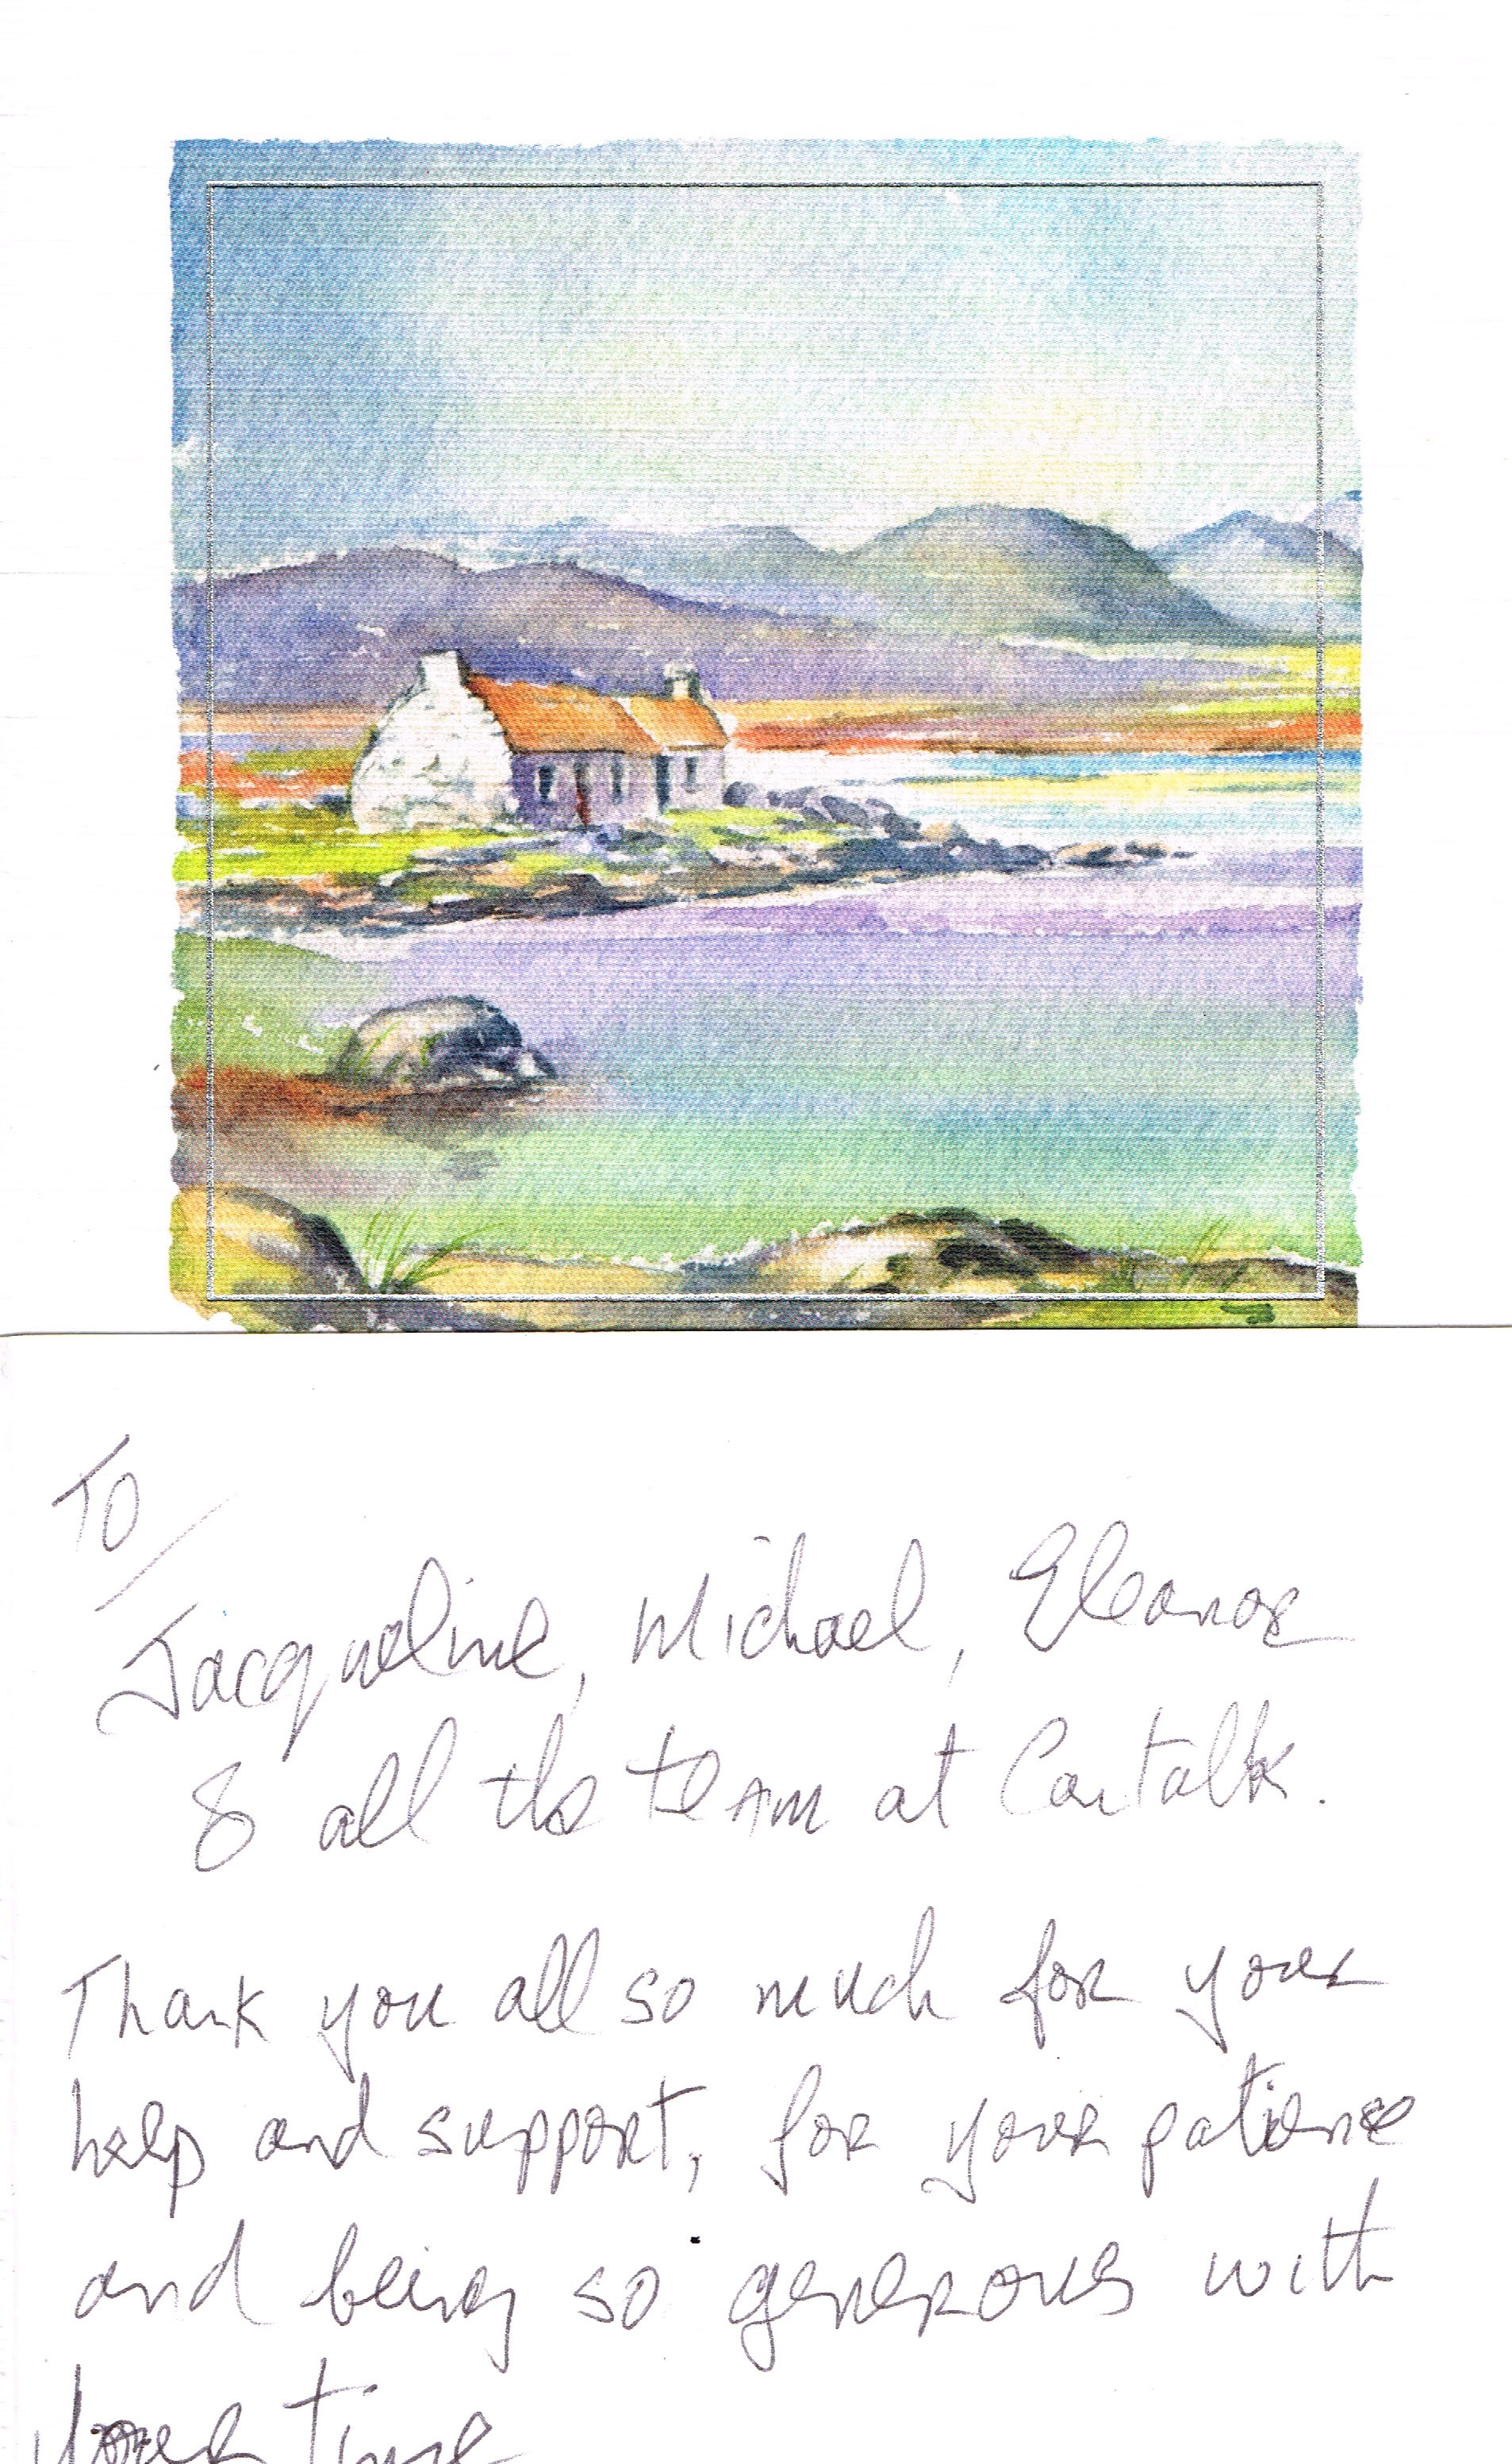 To/
Jacqueline, Michael, Eleanor
& all the team at Cartalk.
Thank you all so much for your
help and support, for your patience
and being so generous with
your time